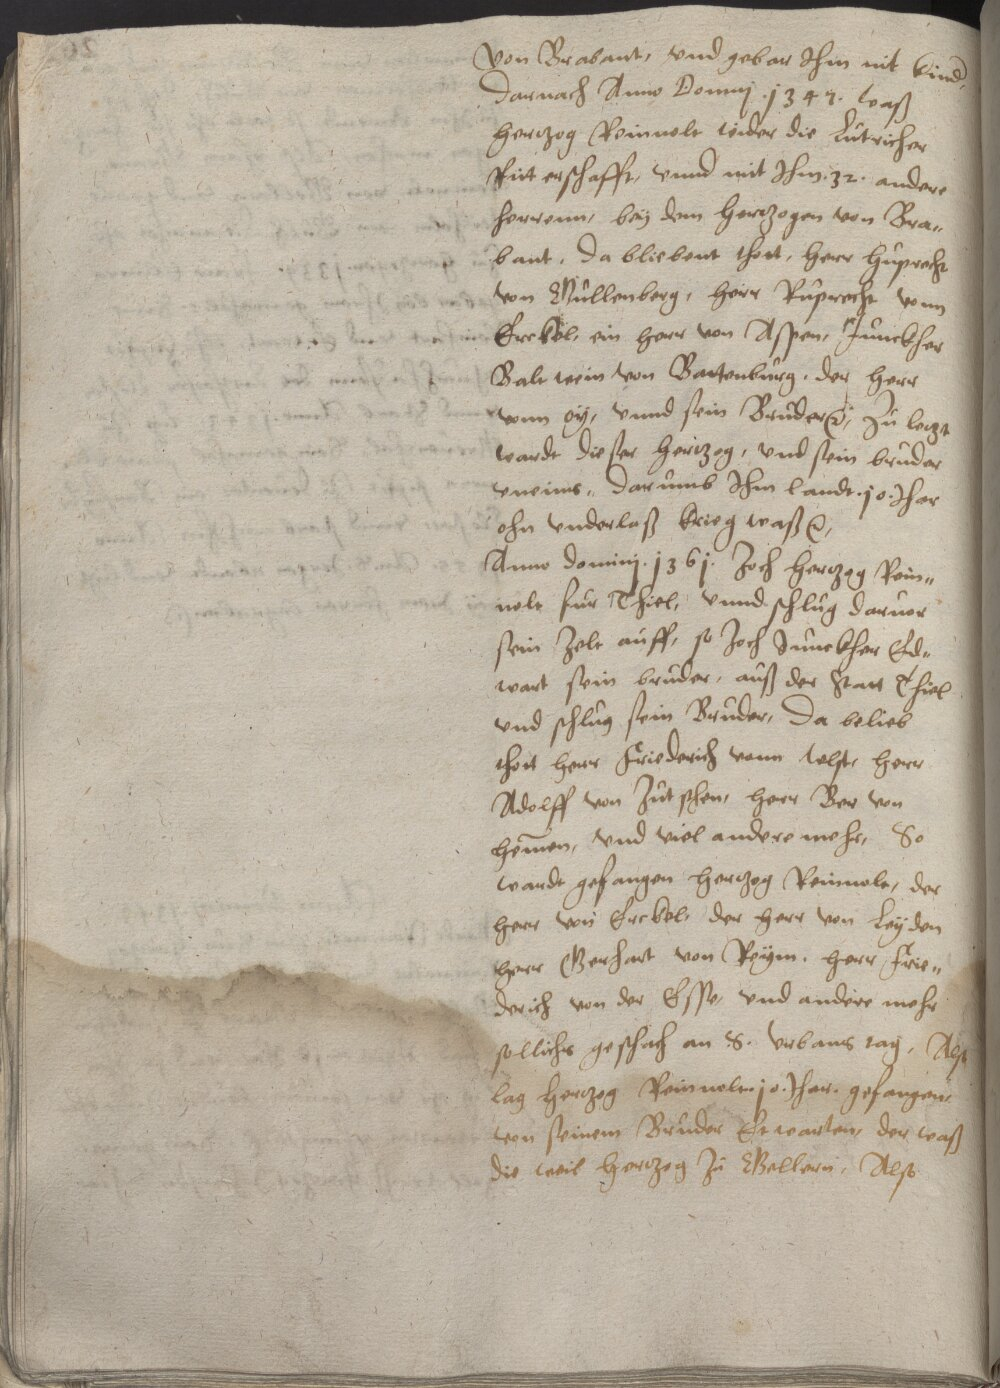 von Brabant, vnd gebar Ihm nit kind,
Darnach Anno Dominj .1347. waß
hertzog Reinnolt wider die Lüttricher
Ritterschafft, vnnd mit Ihm .32. andere
herrenn, bey dem hertzogen von Bra„
bant, Da bliebent thott, herr Hüprecht
von Cüllenberg, herr Rüprecht vonn
Erckel, ein herr von Aspen, Junckher
Baltwein von Battenbürg, der herr
vonn oÿ, vnnd sein Brüder etc, Zü letzt
wardt dießer hertzog, vnd sein brüder
vneins, Darumb Ihm landt .10. Ihar
ohn vnderlaß krieg waß etc,
Anno dominj .1361. Zoch hertzog Rein„
nolt für Thiel, vnnd schlüg daruor
sein Zelt aüff, so Zoch Junckher Ed„
wart sein brüder, aüß der Statt Thiel
vnd schlüg sein Brüder, Da belieb
thott herr Friederich vonn welst, herr
Adolff von Zütphen, herr Ber von
hemen, vnd viel andere mehr, So
wardt gefangen hertzog Reinnolt, der
herr von Erckel, der herr von Leyden
herr Gerhart von Reym, herr Frie„
derich von der Esse, vnd andere mehr
sollichs geschach an S. Vrbans tag, Also
lag hertzog Reinnolt .10. Ihar. gefangen,
von seinem Brüder Etwarten, der waß
die weil hertzog zü Gellern, Also